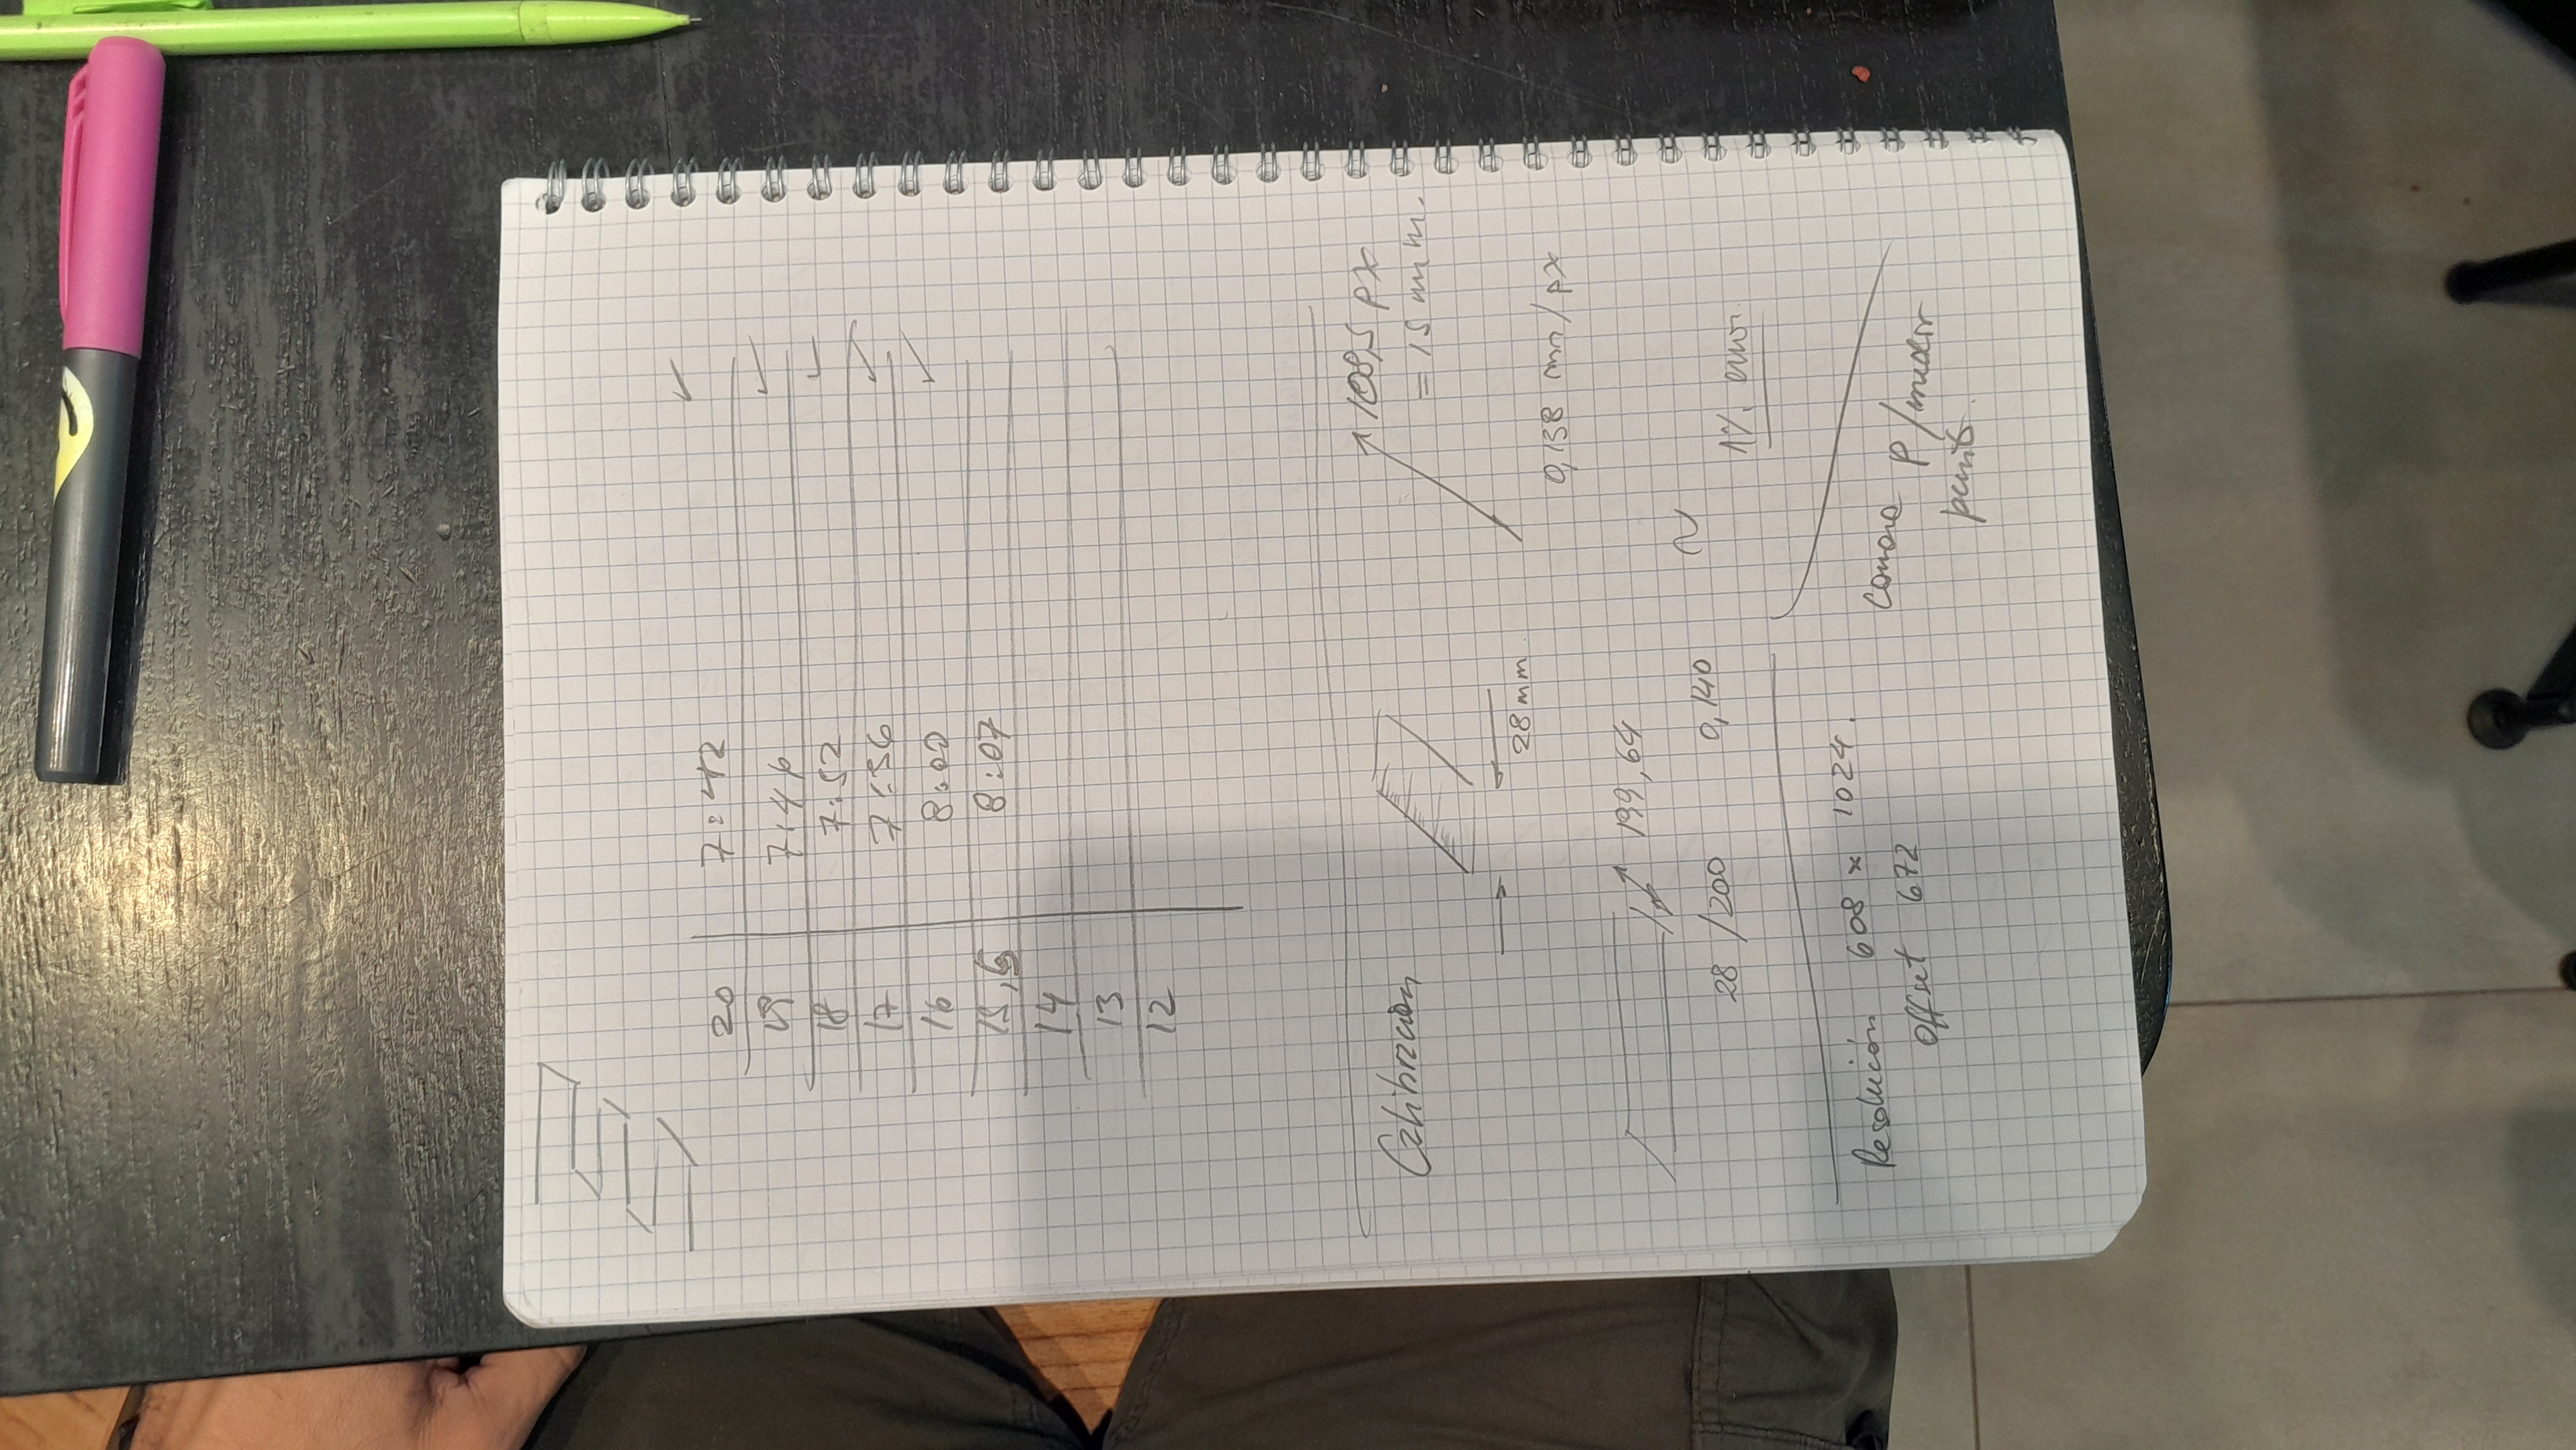 20 7:42 ✓
19 7:46 ✓
18 7:52 ✓
17 7:56 ✓
16 8:00 ✓
15,5 8:07
14
13
12
Calibracion
28 mm.
108,5 px
= 15 mm.
0,138 mm/px
199,64
28 /200 0,140 ~
1% error
Resolución 608 x 1024.
Offset 672
p/medir